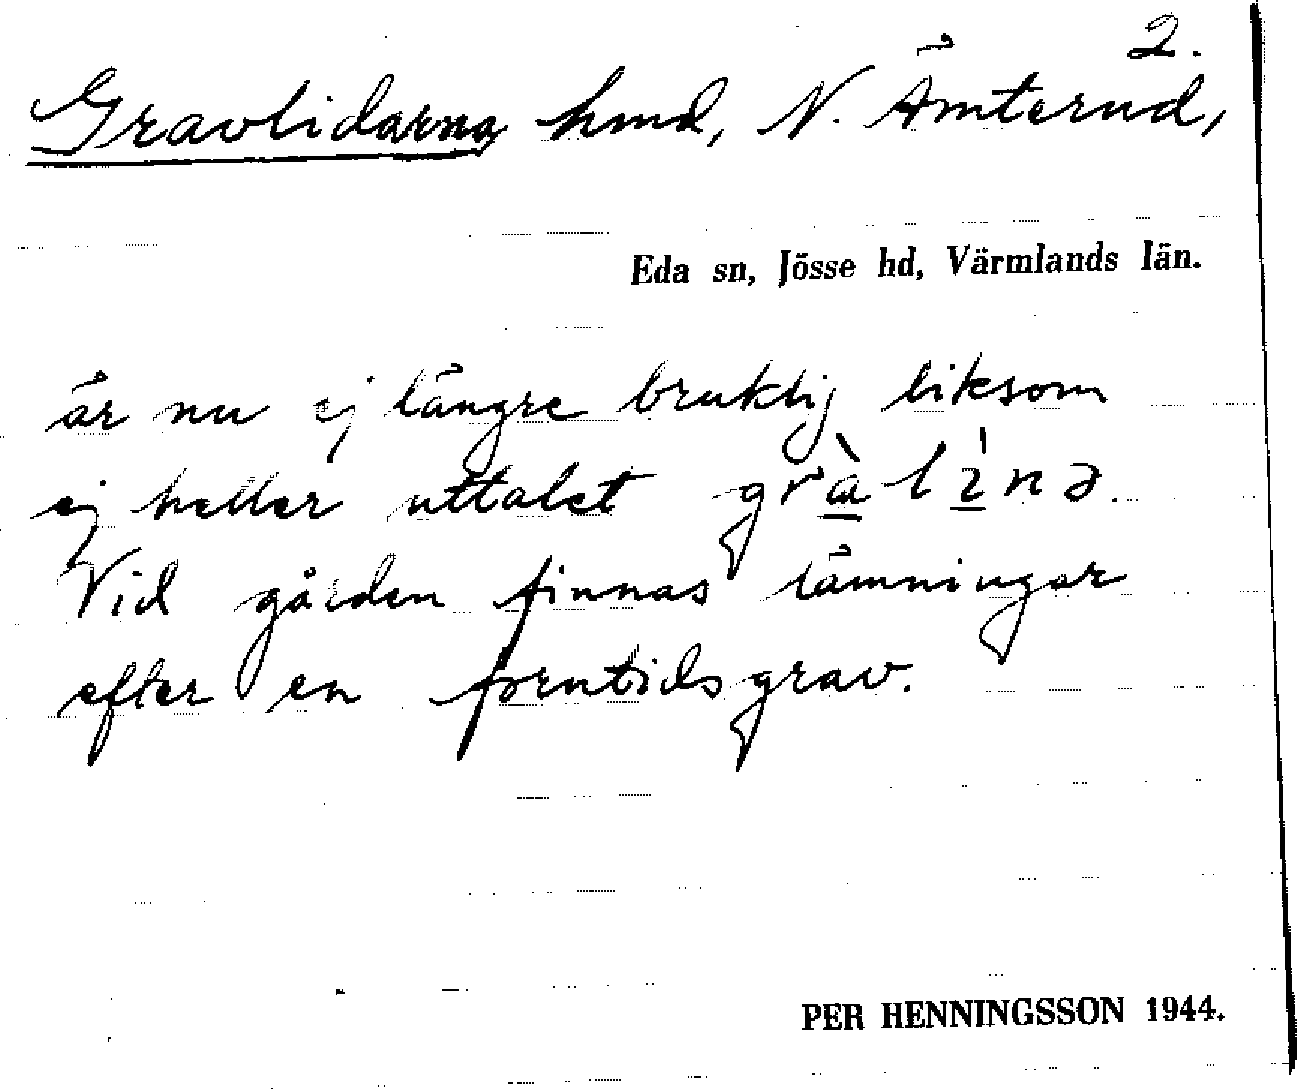 2.
Gravlidarna hmd, N. Ämterud,
Eda sn, Jösse hd, Värmlands län.
är nu ej längre bruklig liksom
ej heller uttalet grà̱lı̱̍nə.
Vid gården finnas lämningar
efter en forntidsgrav.
PER HENNINGSSON 1944.